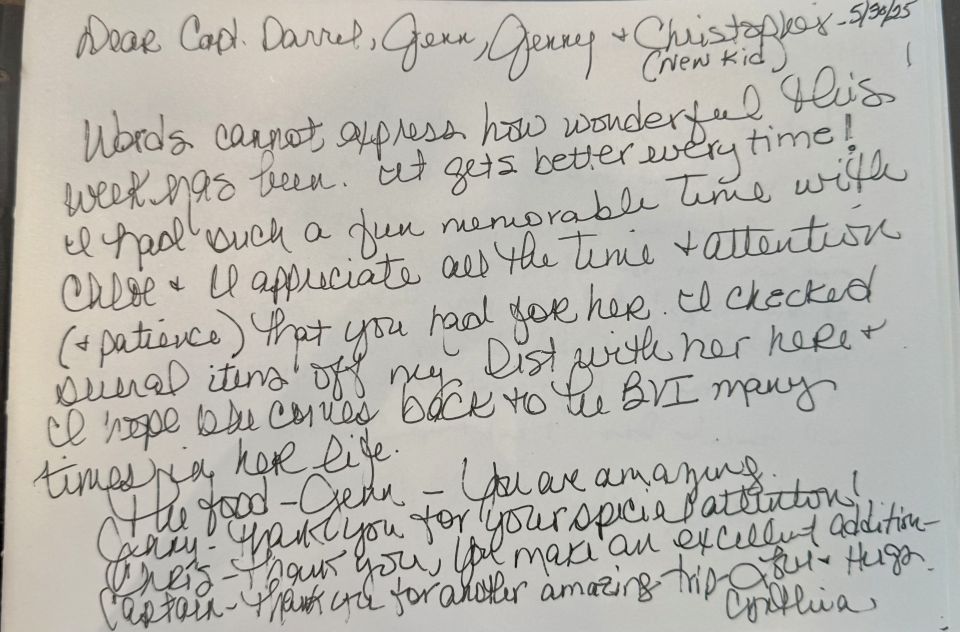 Dear Capt. Darrel, Jenn, Jenny + Christopher - 5/30/25
(New Kid)
Words cannot express how wonderful this
week has been. It gets better every time!
I had such a fun memorable time with
Chloe + I appreciate all the time + attention
(+ patience) that you had for her. I checked
several items off my list with her here +
I hope she comes back to the BVI many
times in her life.
The food - Jenn - You are amazing.
Jenny - Thank you for your special attention!
Chris - Thank you, you make an excellent addition -
Captain - Thank you for another amazing trip - + Hugs.
Cynthia